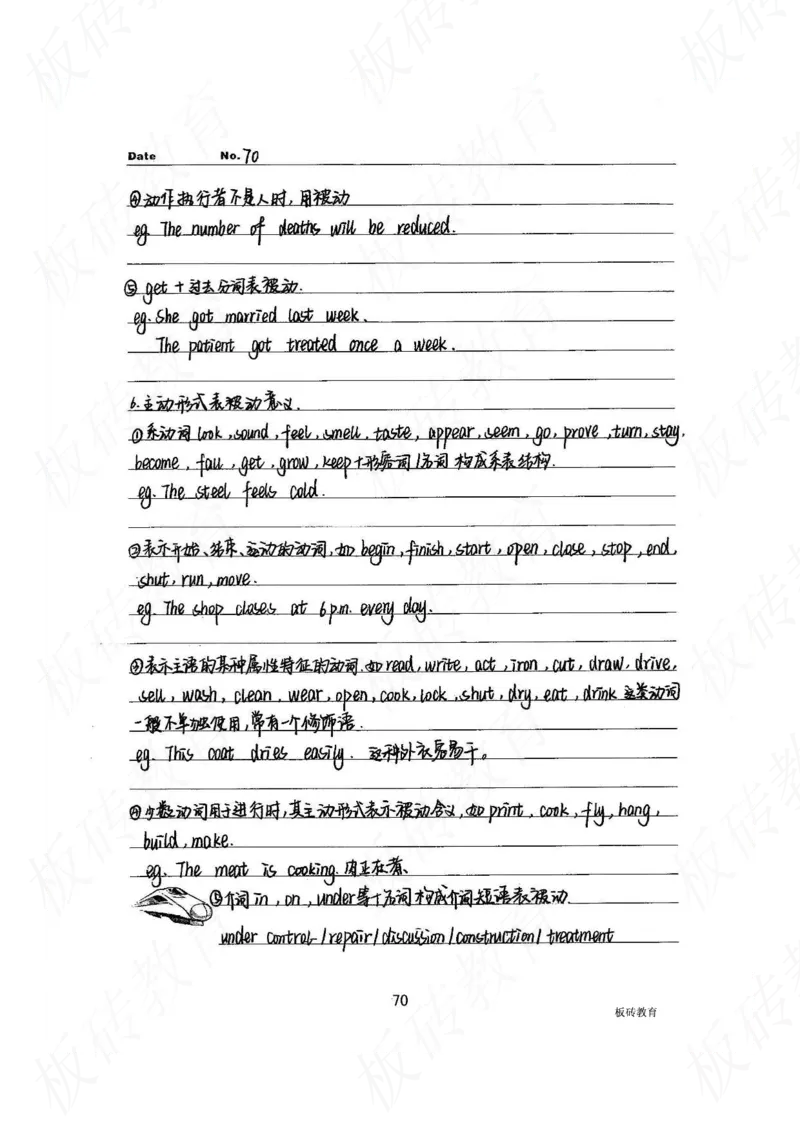 Date No. 70
④动作执行者不是人时，用被动
eg. The number of deaths will be reduced.
⑤ get + 过去分词表被动.
eg. She got married last week.
The patient got treated once a week.
6. 主动形式表被动意义.
①系动词 look, sound, feel, smell, taste, appear, seem, go, prove, turn, stay,
become, fall, get, grow, keep+形容词/名词 构成系表结构.
eg. The steel feels cold.
②表示开始、结束、运动的动词，如 begin, finish, start, open, close, stop, end,
shut, run, move.
eg. The shop closes at 6 p.m. every day.
③表示主语的某种属性特征的动词. 如 read, write, act, iron, cut, draw, drive,
sell, wash, clean, wear, open, cook, lock, shut, dry, eat, drink 这类动词
一般不单独使用，常有一个修饰语.
eg. This coat dries easily. 这种外衣容易干。
④少数动词用于进行时，其主动形式表示被动含义，如 print, cook, fly, hang,
build, make.
eg. The meat is cooking. 肉正在煮.
⑤介词 in, on, under等+名词构成介词短语表被动.
under control / repair / discussion / construction / treatment
70
板砖教育